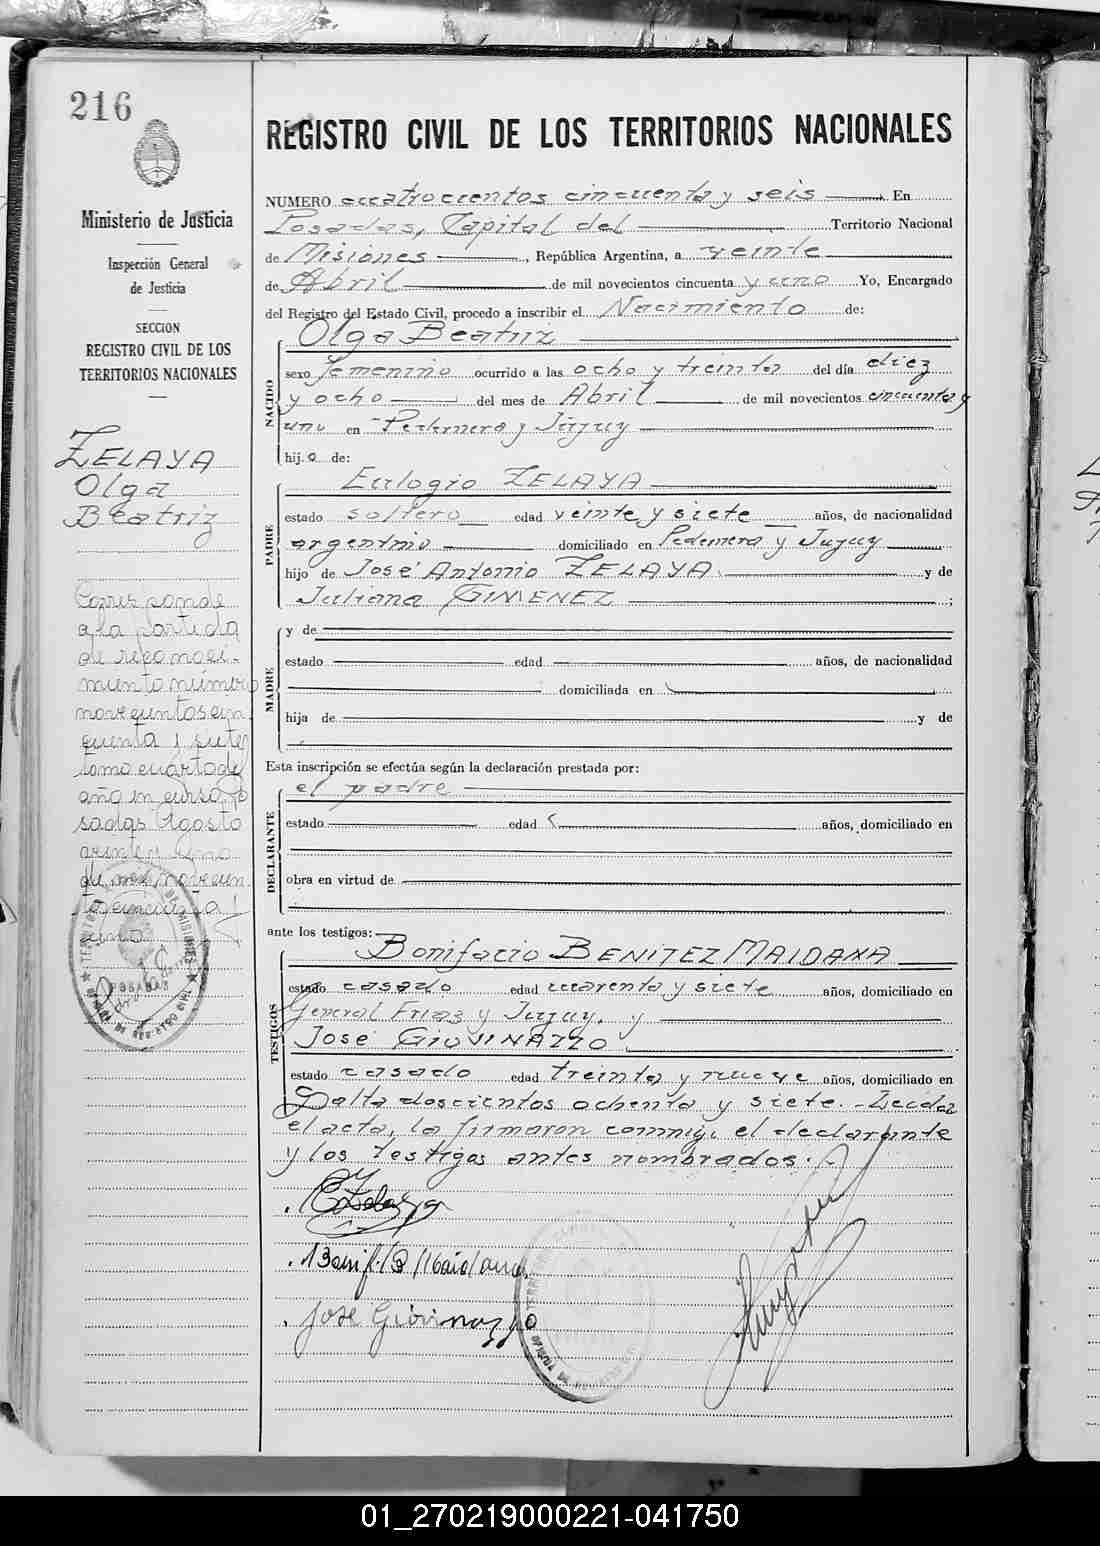 216
Ministerio de Justicia
Inspección General
de Justicia
SECCION
REGISTRO CIVIL DE LOS
TERRITORIOS NACIONALES
ZELAYA
Olga
Beatriz
Corresponde
a la partida
de reconoci-
miento número
novecientos cin
cuenta y siete
tomo cuarto del
año en curso, Po
sadas Agosto
de mil novecien
tos cincuenta y
uno
POSADAS
REGISTRO CIVIL DE LOS TERRITORIOS NACIONALES
NUMERO cuatrocientos cincuenta y seis En
Posadas, Capital del Territorio Nacional
de Misiones, República Argentina, a veinte
de Abril de mil novecientos cincuenta y uno Yo, Encargado
del Registro del Estado Civil, procedo a inscribir el Nacimiento de:
NACIDO
Olga Beatriz
sexo femenino ocurrido a las ocho y treinta del día diez
y ocho del mes de Abril de mil novecientos cincuenta y
uno en Pedernera y Jujuy
hij a de:
PADRE
Eulogio ZELAYA
estado soltero edad veinte y siete años, de nacionalidad
argentino domiciliado en Pedernera y Jujuy
hijo de José Antonio ZELAYA y de
Juliana GIMENEZ ;
MADRE
y de
estado edad años, de nacionalidad
domiciliada en
hija de y de
Esta inscripción se efectúa según la declaración prestada por:
DECLARANTE
el padre
estado edad años, domiciliado en
obra en virtud de
ante los testigos:
TESTIGOS
Bonifacio BENITEZ MAIDANA
estado casado edad cuarenta y siete años, domiciliado en
General Frias y Jujuy, y
José GIOVINAZZO
estado casado edad treinta y nueve años, domiciliado en
Salta doscientos ochenta y siete. - Leida
el acta, la firmaron conmigo el declarante
y los testigos antes nombrados.
José Giovinazzo
01_270219000221-041750